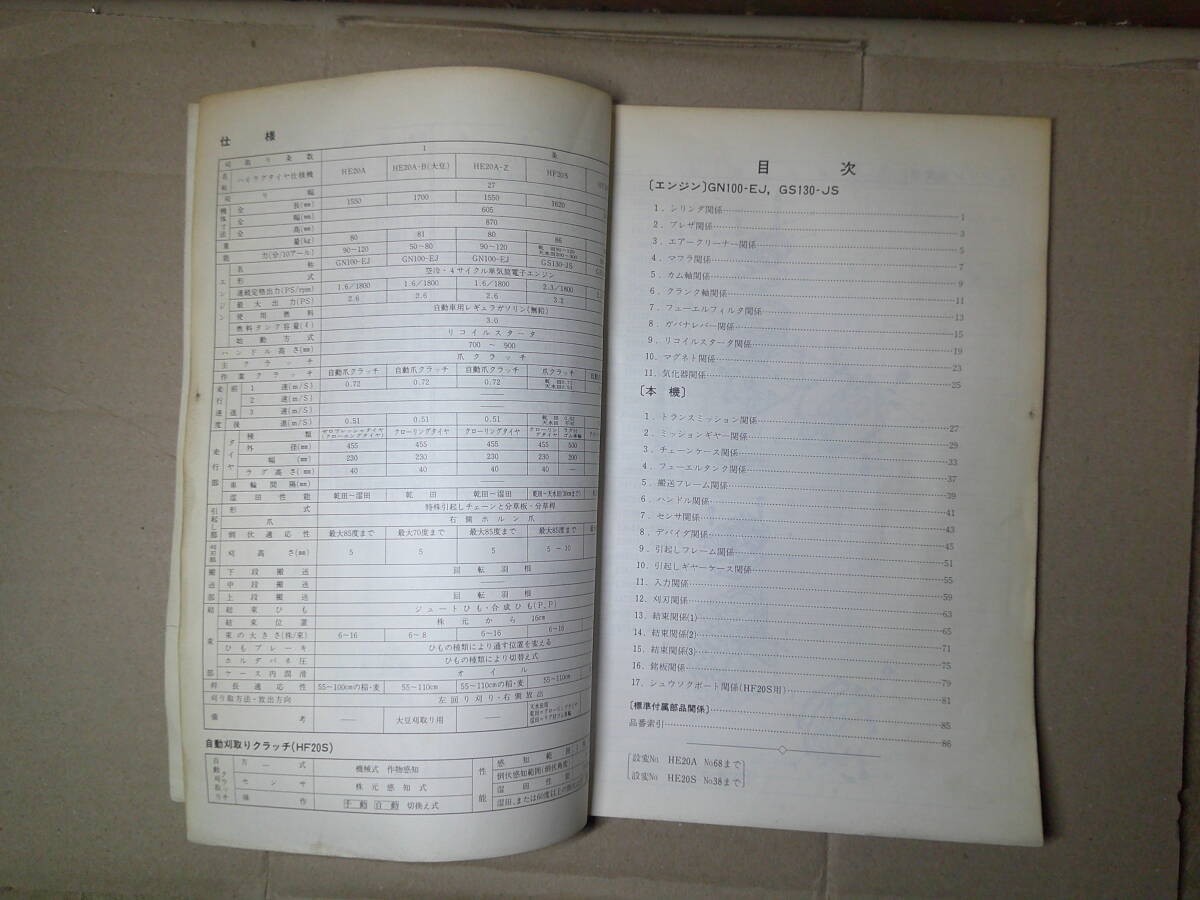 仕様
刈取り条数 1 条
名称 ハイラグタイヤ仕様機 HE20A HE20A-B(大豆) HE20A-Z HF20S
刈り幅 27
機体寸法 全長(mm) 1550 1700 1550 1620
全幅(mm) 605
全高(mm) 870
重量(kg) 80 81 80 86
能力(分/10アール) 90~120 50~80 90~120
エンジン 名称 GN100-EJ GN100-EJ GN100-EJ GS130-JS
形式 空冷・4サイクル単気筒電子エンジン
連続定格出力(PS/rpm) 1.6/1800 1.6/1800 1.6/1800 2.3/1800
最大出力(PS) 2.6 2.6 2.6 3.2
使用燃料 自動車用レギュラガソリン(無鉛)
燃料タンク容量(ℓ) 3.0
始動方式 リコイルスタータ
ハンドル高さ(mm) 700 ~ 900
主クラッチ 爪クラッチ
作業クラッチ 自動爪クラッチ 自動爪クラッチ 自動爪クラッチ 爪クラッチ
走行速度 前進 1速(m/S) 0.72 0.72 0.72
2速(m/S) ——
3速(m/S) ——
後進(m/S) 0.51 0.51 0.51
走行部 タイヤ 種類 クローリングタイヤ クローリングタイヤ
外径(mm) 455 455 455 455 500
幅(mm) 230 230 230 230 200
ラグ高さ(mm) 40 40 40 40 —
車輪間隔(mm) ——
湿田性能 乾田~湿田 乾田 乾田~湿田
引起し部 形式 特殊引起しチェーンと分草板・分草桿
爪 右側ホルン爪
倒伏適応性 最大85度まで 最大70度まで 最大85度まで 最大85度まで
刈取部 刈高さ(mm) 5 5 5 5~10
搬送部 下段搬送 回転羽根
中段搬送 ——
上段搬送 回転羽根
結束部 結束ひも ジュートひも・合成ひも(P.P)
結束位置 株元から 16cm
束の大きさ(株/束) 6~16 6~8 6~16 6~16
ひもブレーキ ひもの種類により通す位置を変える
ホルダバネ圧 ひもの種類により切替え式
ケース内潤滑 オイル
稈長適応性 55~100cmの稲・麦 55~110cm 55~110cmの稲・麦 55~110cm
刈り取方法・放出方向 左回り刈り・右側放出
備考 —— 大豆刈取り用 ——
自動刈取りクラッチ(HF20S)
自動刈取りクラッチ 方式 機械式 作物感知
センサ 株元感知式
操作 手動 自動 切換え式
性能 感知範囲
倒伏感知範囲(倒伏角度)
湿田性能
湿田、または60度以上の
目次
〔エンジン〕GN100-EJ, GS130-JS
1. シリンダ関係 1
2. ブレザ関係 3
3. エアークリーナー関係 5
4. マフラ関係 7
5. カム軸関係 9
6. クランク軸関係 11
7. フューエルフィルタ関係 13
8. ガバナレバー関係 15
9. リコイルスタータ関係 19
10. マグネト関係 23
11. 気化器関係 25
〔本機〕
1. トランスミッション関係 27
2. ミッションギヤー関係 29
3. チェーンケース関係 33
4. フューエルタンク関係 37
5. 搬送フレーム関係 39
6. ハンドル関係 41
7. センサ関係 43
8. デバイダ関係 45
9. 引起しフレーム関係 51
10. 引起しギヤーケース関係 55
11. 入力関係 59
12. 刈刃関係 63
13. 結束関係(1) 65
14. 結束関係(2) 71
15. 結束関係(3) 75
16. 銘板関係 79
17. シュウソクボート関係(HF20S用) 81
〔標準付属部品関係〕 85
品番索引 86
設変No HE20A No68まで
設変No HE20S No38まで